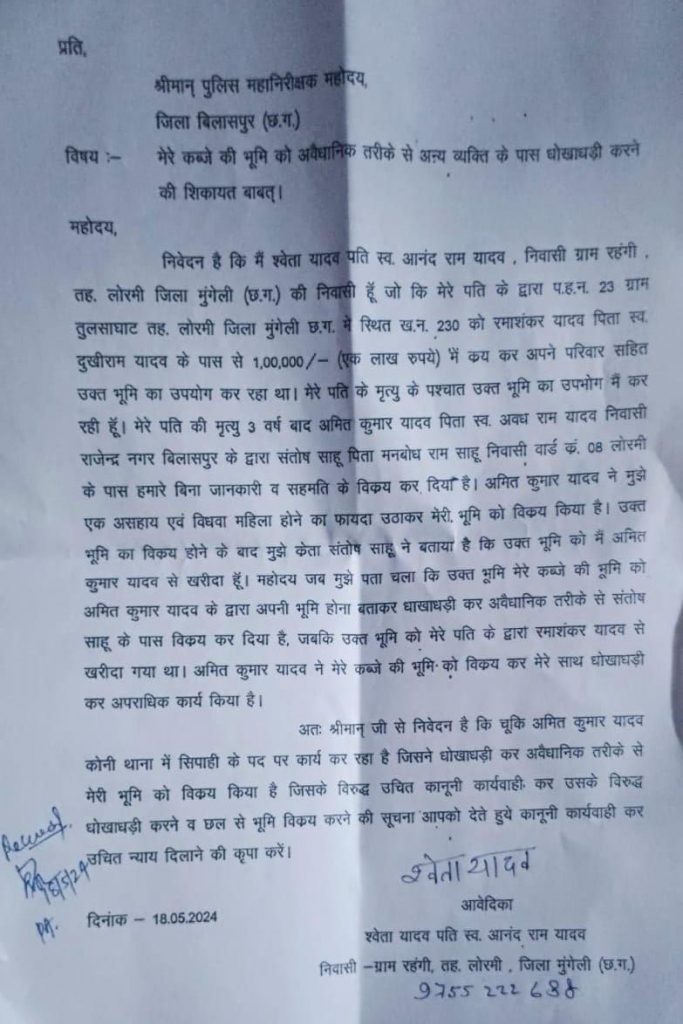 प्रति,
श्रीमान् पुलिस महानिरीक्षक महोदय,
जिला बिलासपुर (छ.ग.)
विषय :- मेरे कब्जे की भूमि को अवैधानिक तरीके से अन्य व्यक्ति के पास धोखाधड़ी करने
की शिकायत बाबत्।
महोदय,
निवेदन है कि मैं श्वेता यादव पति स्व. आनंद राम यादव , निवासी ग्राम रहंगी ,
तह. लोरमी जिला मुंगेली (छ.ग.) की निवासी हूँ जो कि मेरे पति के द्वारा प.ह.न. 23 ग्राम
तुलसाघाट तह. लोरमी जिला मुंगेली छ.ग. में स्थित ख.न. 230 को रमाशंकर यादव पिता स्व.
दुखीराम यादव के पास से 1,00,000/- (एक लाख रुपये) में क्रय कर अपने परिवार सहित
उक्त भूमि का उपयोग कर रहा था। मेरे पति के मृत्यु के पश्चात उक्त भूमि का उपभोग मैं कर
रही हूँ। मेरे पति की मृत्यु 3 वर्ष बाद अमित कुमार यादव पिता स्व. अवध राम यादव निवासी
राजेन्द्र नगर बिलासपुर के द्वारा संतोष साहू पिता मनबोध राम साहू निवासी वार्ड क्रं. 08 लोरमी
के पास हमारे बिना जानकारी व सहमति के विक्रय कर दिया है। अमित कुमार यादव ने मुझे
एक असहाय एवं विधवा महिला होने का फायदा उठाकर मेरी भूमि को विक्रय किया है। उक्त
भूमि का विक्रय होने के बाद मुझे क्रेता संतोष साहू ने बताया है कि उक्त भूमि को मैं अमित
कुमार यादव से खरीदा हूँ। महोदय जब मुझे पता चला कि उक्त भूमि मेरे कब्जे की भूमि को
अमित कुमार यादव के द्वारा अपनी भूमि होना बताकर धाखाधड़ी कर अवैधानिक तरीके से संतोष
साहू के पास विक्रय कर दिया है, जबकि उक्त भूमि को मेरे पति के द्वारा रमाशंकर यादव से
खरीदा गया था। अमित कुमार यादव ने मेरे कब्जे की भूमि को विक्रय कर मेरे साथ धोखाधड़ी
कर अपराधिक कार्य किया है।
अतः श्रीमान् जी से निवेदन है कि चूकि अमित कुमार यादव
कोनी थाना में सिपाही के पद पर कार्य कर रहा है जिसने धोखाधड़ी कर अवैधानिक तरीके से
मेरी भूमि को विक्रय किया है जिसके विरुद्ध उचित कानूनी कार्यवाही कर उसके विरुद्ध
धोखाधड़ी करने व छल से भूमि विक्रय करने की सूचना आपको देते हुये कानूनी कार्यवाही कर
उचित न्याय दिलाने की कृपा करें।
श्वेता यादव
आवेदिका
दिनांक – 18.05.2024
श्वेता यादव पति स्व. आनंद राम यादव
निवासी –ग्राम रहंगी, तह. लोरमी , जिला मुंगेली (छ.ग.)
9755 222 688